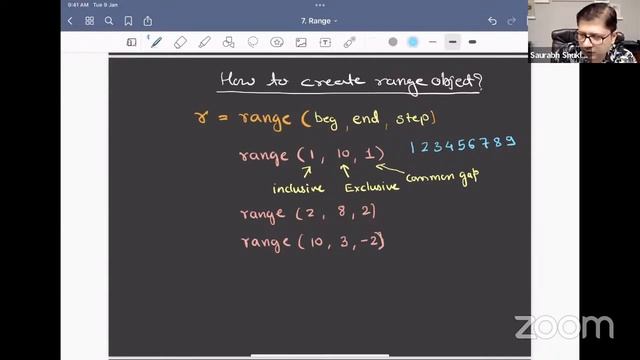 9:41 AM Tue 9 Jan
7. Range
Saurabh Shukl
How to create range object?
r = range (beg, end, step)
range (1, 10, 1) 1 2 3 4 5 6 7 8 9
inclusive Exclusive common gap
range (2, 8, 2)
range (10, 3, -2)
zoom